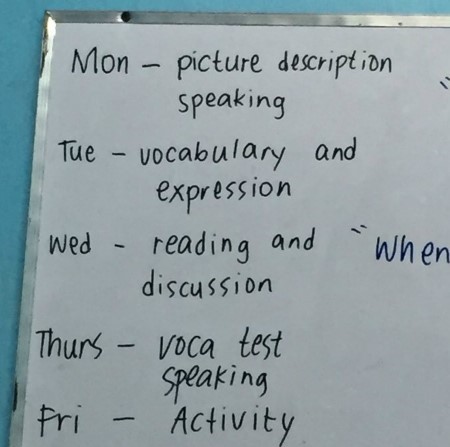 Mon – picture description
speaking
Tue – vocabulary and
expression
Wed - reading and
discussion
"When
Thurs – voca test
speaking
Fri – Activity